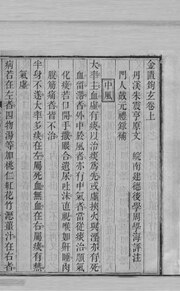 金匱鈎玄卷上
丹溪朱震亨原文　皖南建德後學周學海評注
門人戴元禮錄補
中風
大率主血虛有痰以治痰為先或虛挾火與溼亦有死
血留滯者外中於風者亦有中氣者當從痰治順氣
化痰若口開手撒眼合遺尿吐沫直視喉如鼾睡肉
脫筋痛者皆不治
半身不遂大率多痰在左屬死血無血在右屬痰有熱
氣虛
病若在左者四物湯等加桃仁紅花竹瀝薑汁在右者